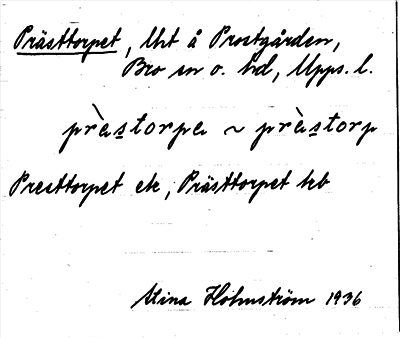 Prästtorpet, lht å Prostgården,
Bro sn o. hd, Upps. l.
prɛ̀storpa ~ prɛ̀storp
Presttorpet ek, Prästtorpet hb
Stina Holmström 1936